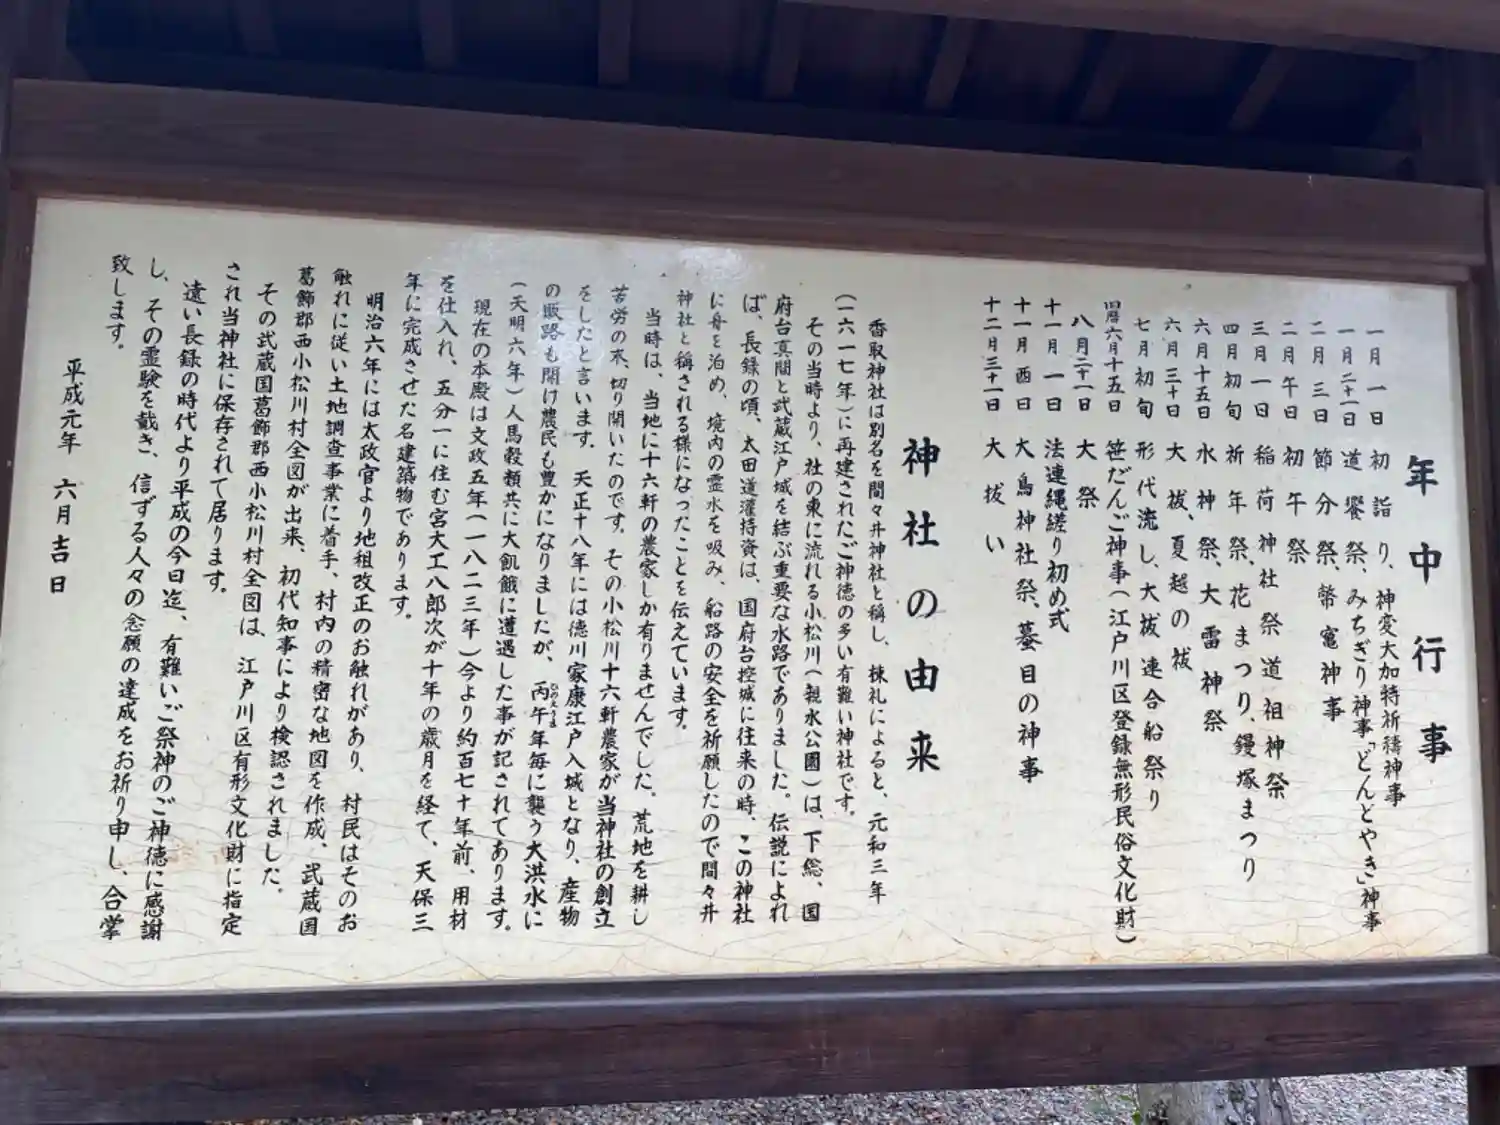 年中行事
一月一日 初詣り、神変大加特祈禱神事
一月二十一日 道饗祭、みちぎり神事「どんどやき」神事
二月三日 節分祭、幣竃神事
二月午日 初午祭
三月一日 稲荷神社祭道祖神祭
四月初旬 祈年祭、花まつり、鏝塚まつり
六月十五日 水神祭、大雷神祭
六月三十日 大祓、夏越の祓
七月初旬 形代流し、大祓連合船祭り
旧暦六月十五日 笹だんご神事(江戸川区登録無形民俗文化財)
八月二十一日 大祭
十一月一日 法連縄縒り初め式
十一月酉日 大鳥神社祭、蟇目の神事
十二月三十一日 大祓い
神社の由来
香取神社は別名を間々井神社と称し、棟礼によると、元和三年
(一六一七年)に再建されたご神徳の多い有難い神社です。
その当時より、社の東に流れる小松川(親水公園)は、下総、国
府台真間と武蔵江戸城を結ぶ重要な水路でありました。伝説によれ
ば、長録の頃、太田道灌持資は、国府台控城に往来の時、この神社
に舟を泊め、境内の霊水を吸み、船路の安全を祈願したので間々井
神社と稱される様になったことを伝えています。
当時は、当地に十六軒の農家しか有りませんでした。荒地を耕し
苦労の末、切り開いたのです。その小松川十六軒農家が当神社の創立
をしたと言います。天正十八年には徳川家康江戸入城となり、産物
の販路も開け農民も豊かになりましたが、丙午年毎に襲う大洪水に
(天明六年)人馬穀類共に大飢餓に遭遇した事が記されてあります。
現在の本殿は文政五年(一八二三年)今より約百七十年前、用材
を仕入れ、五分一に住む宮大工八郎次が十年の歳月を経て、天保三
年に完成させた名建築物であります。
明治六年には太政官より地租改正のお触れがあり、村民はそのお
触れに従い土地調査事業に着手、村内の精密な地図を作成、武蔵国
葛飾郡西小松川村全図が出来、初代知事により検認されました。
その武蔵国葛飾郡西小松川村全図は、江戸川区有形文化財に指定
され当神社に保存されて居ります。
遠い長録の時代より平成の今日迄、有難いご祭神のご神徳に感謝
し、その霊験を戴き、信ずる人々の念願の達成をお祈り申し、合掌
致します。
平成元年 六月吉日